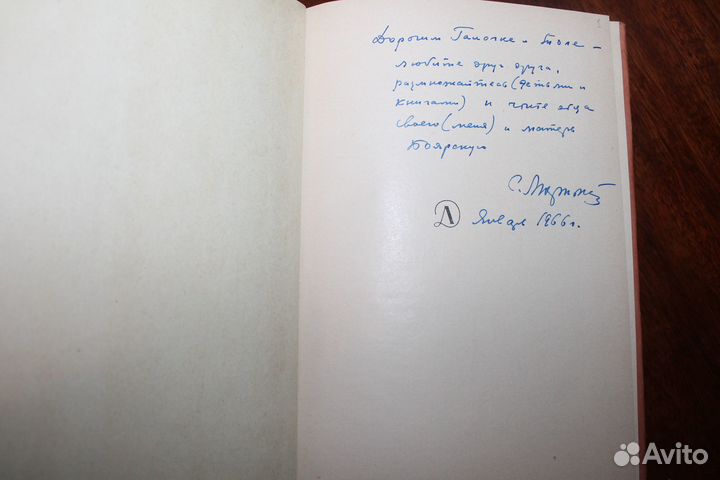 Дорогим Галочке и Толе –
любите друг друга,
размножайтесь (детьми и
книгами) и чтите отца
своего (меня) и матерь
Боярскую
С.
Январь 1966 г.
Avito